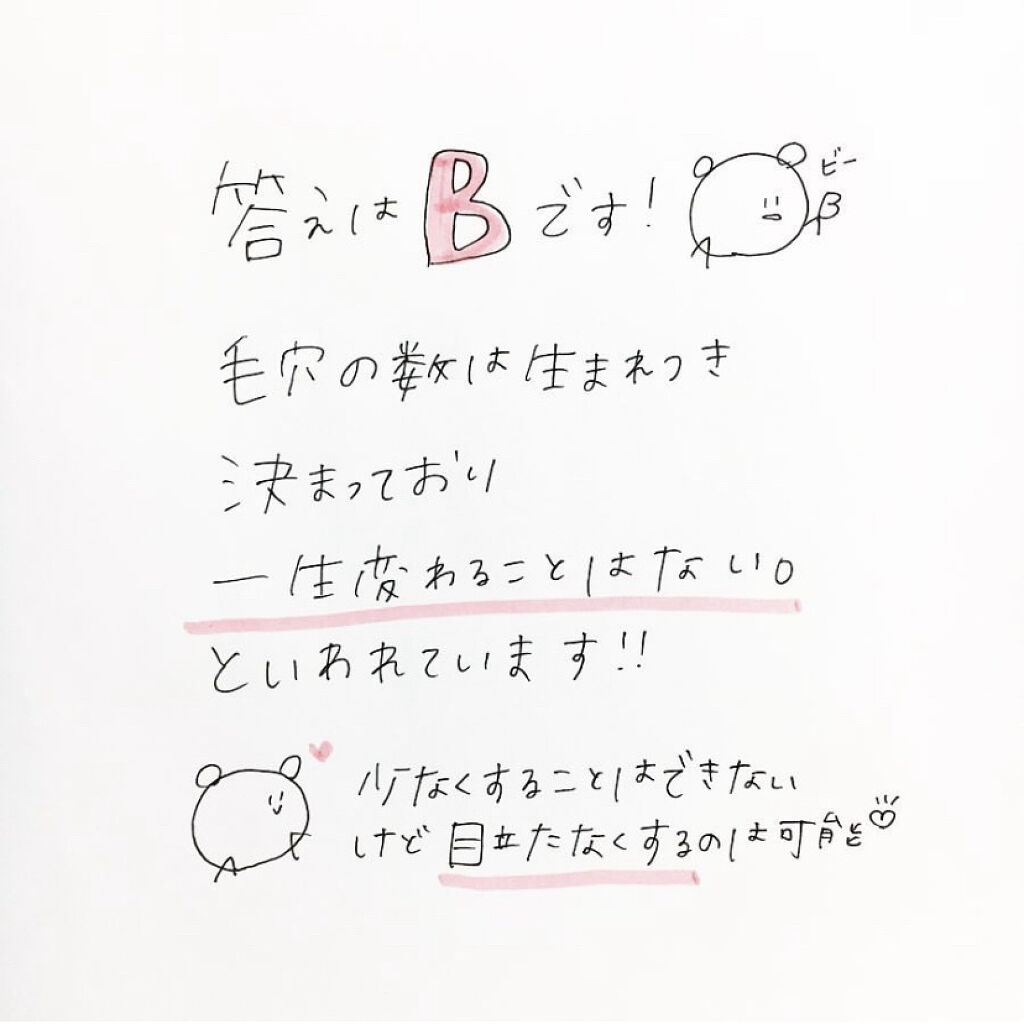 答えはBです!
ビー
B
毛穴の数は生まれつき
決まっており
一生変わることはない。
といわれています!!
少なくすることはできない
けど目立たなくするのは可能